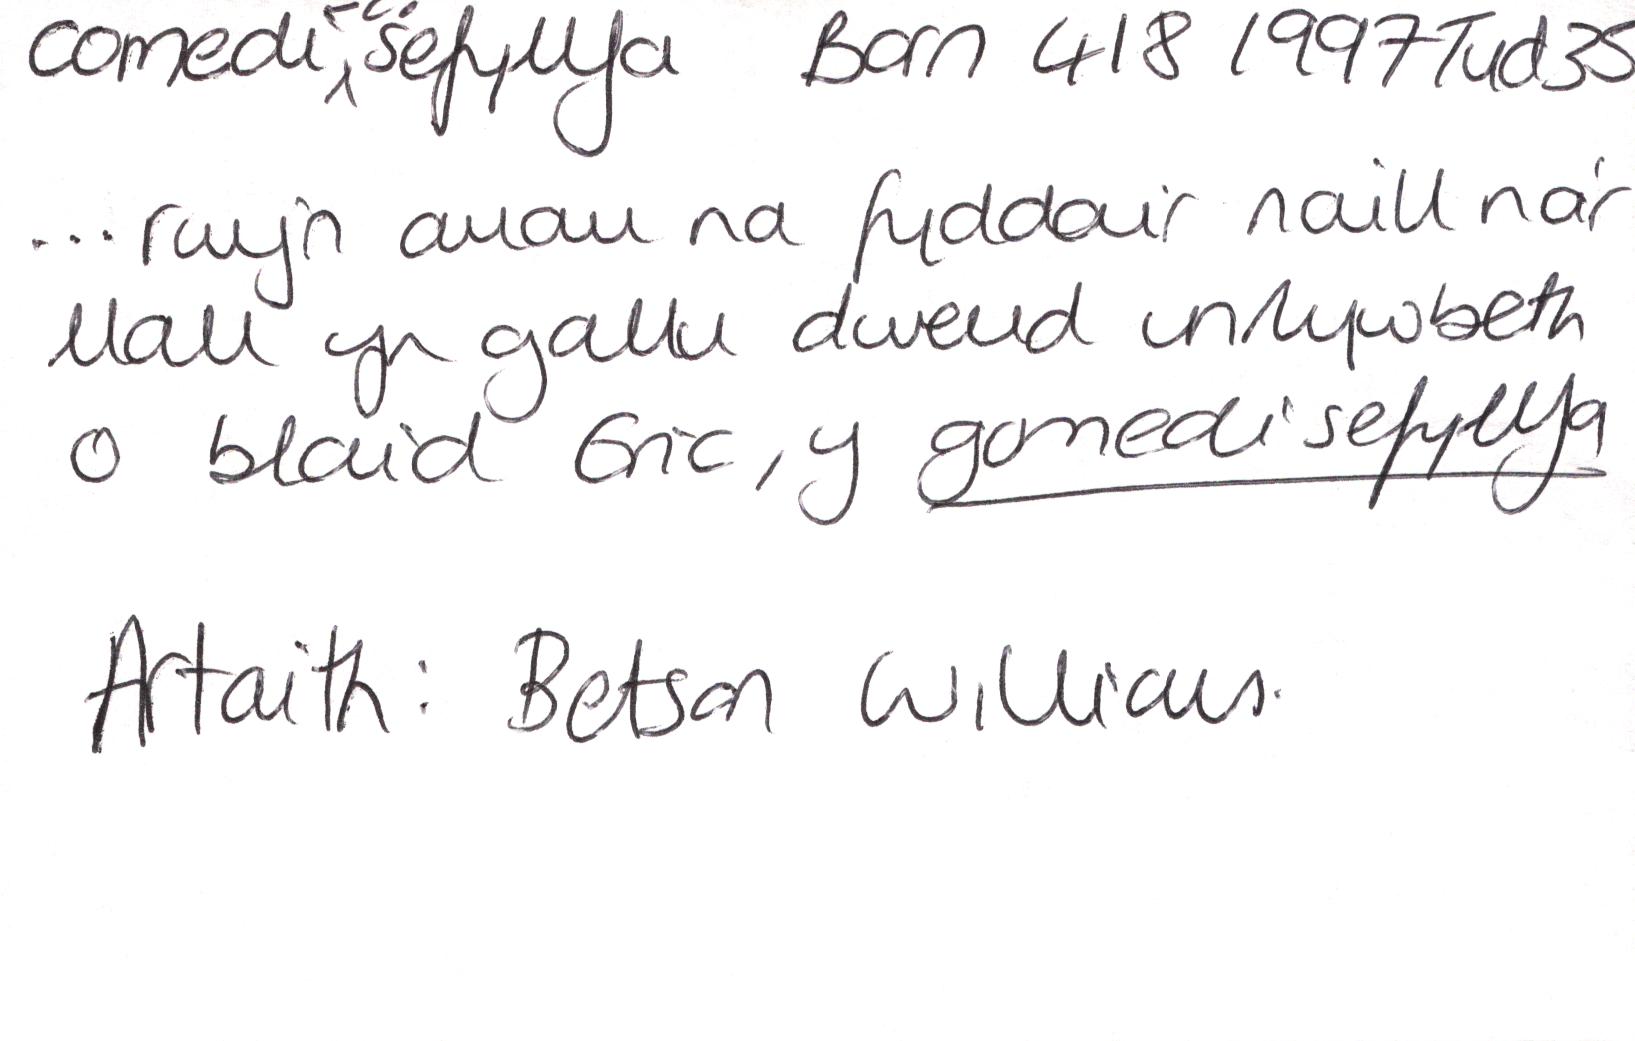 comedi sefyllfa Barn 418 1997 Tud 35
...rwy'n amau na fyddai'r naill na'r
llall yn gallu dweud unrhywbeth
o blaid Eric, y gomedi sefyllfa
Artaith: Betsan Williams.